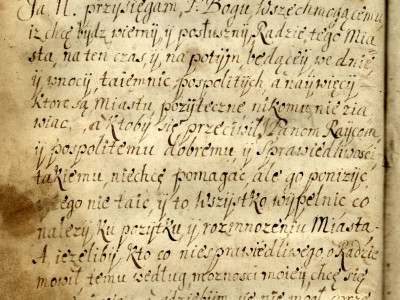 Ja N. przysięgam, P. Bogu Wszechmogącemu
iz chcę bydz wierny, y posłuszny, Radzie tego Mia
sta, na ten czas, y na potym będącey we dnie
y wnocy, taiemnic pospolitych, a naywięcy
ktore są Miastu pozyteczne nikomu nie zia
wiac, a ktoby się przeciwił Panom Raycom
y pospolitemu dobremu y sprawiedliwosci
takiemu niechcę pomagac ale go ponizyc
y tego nie taic, y to wszystko wypełnic co
nalezy ku pozytku y rozmnozeniu Miasta.
A iezeliby, kto co niesprawiedliwego o Radzie
mowił temu według moznosci moiey chcę się